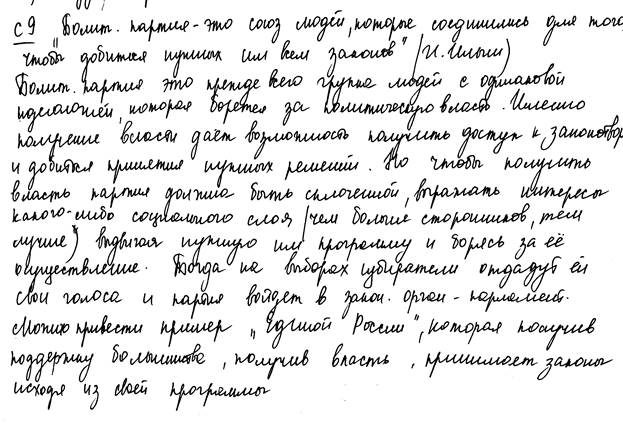 С9 "Полит. партия - это союз людей, которые соединились для того,
чтобы добиться нужных им всем законов" (И. Ильин)
Полит. партия это прежде всего группа людей с одинаковой
идеологией, которая борется за политическую власть. Именно
получение власти даёт возможность получить доступ к законотвор
и добиться принятия нужных решений. Но чтобы получить
власть партия должна быть сплоченной, выражать интересы
какого-либо социального слоя (чем больше сторонников, тем
лучше) выдвигая нужную им программу и борясь за её
осуществление. Тогда на выборах избиратели отдадут ей
свои голоса и партия войдет в закон. орган - парламент.
Можно привести пример "Единой России", которая получив
поддержку большинства, получив власть, принимает законы
исходя из своей программы